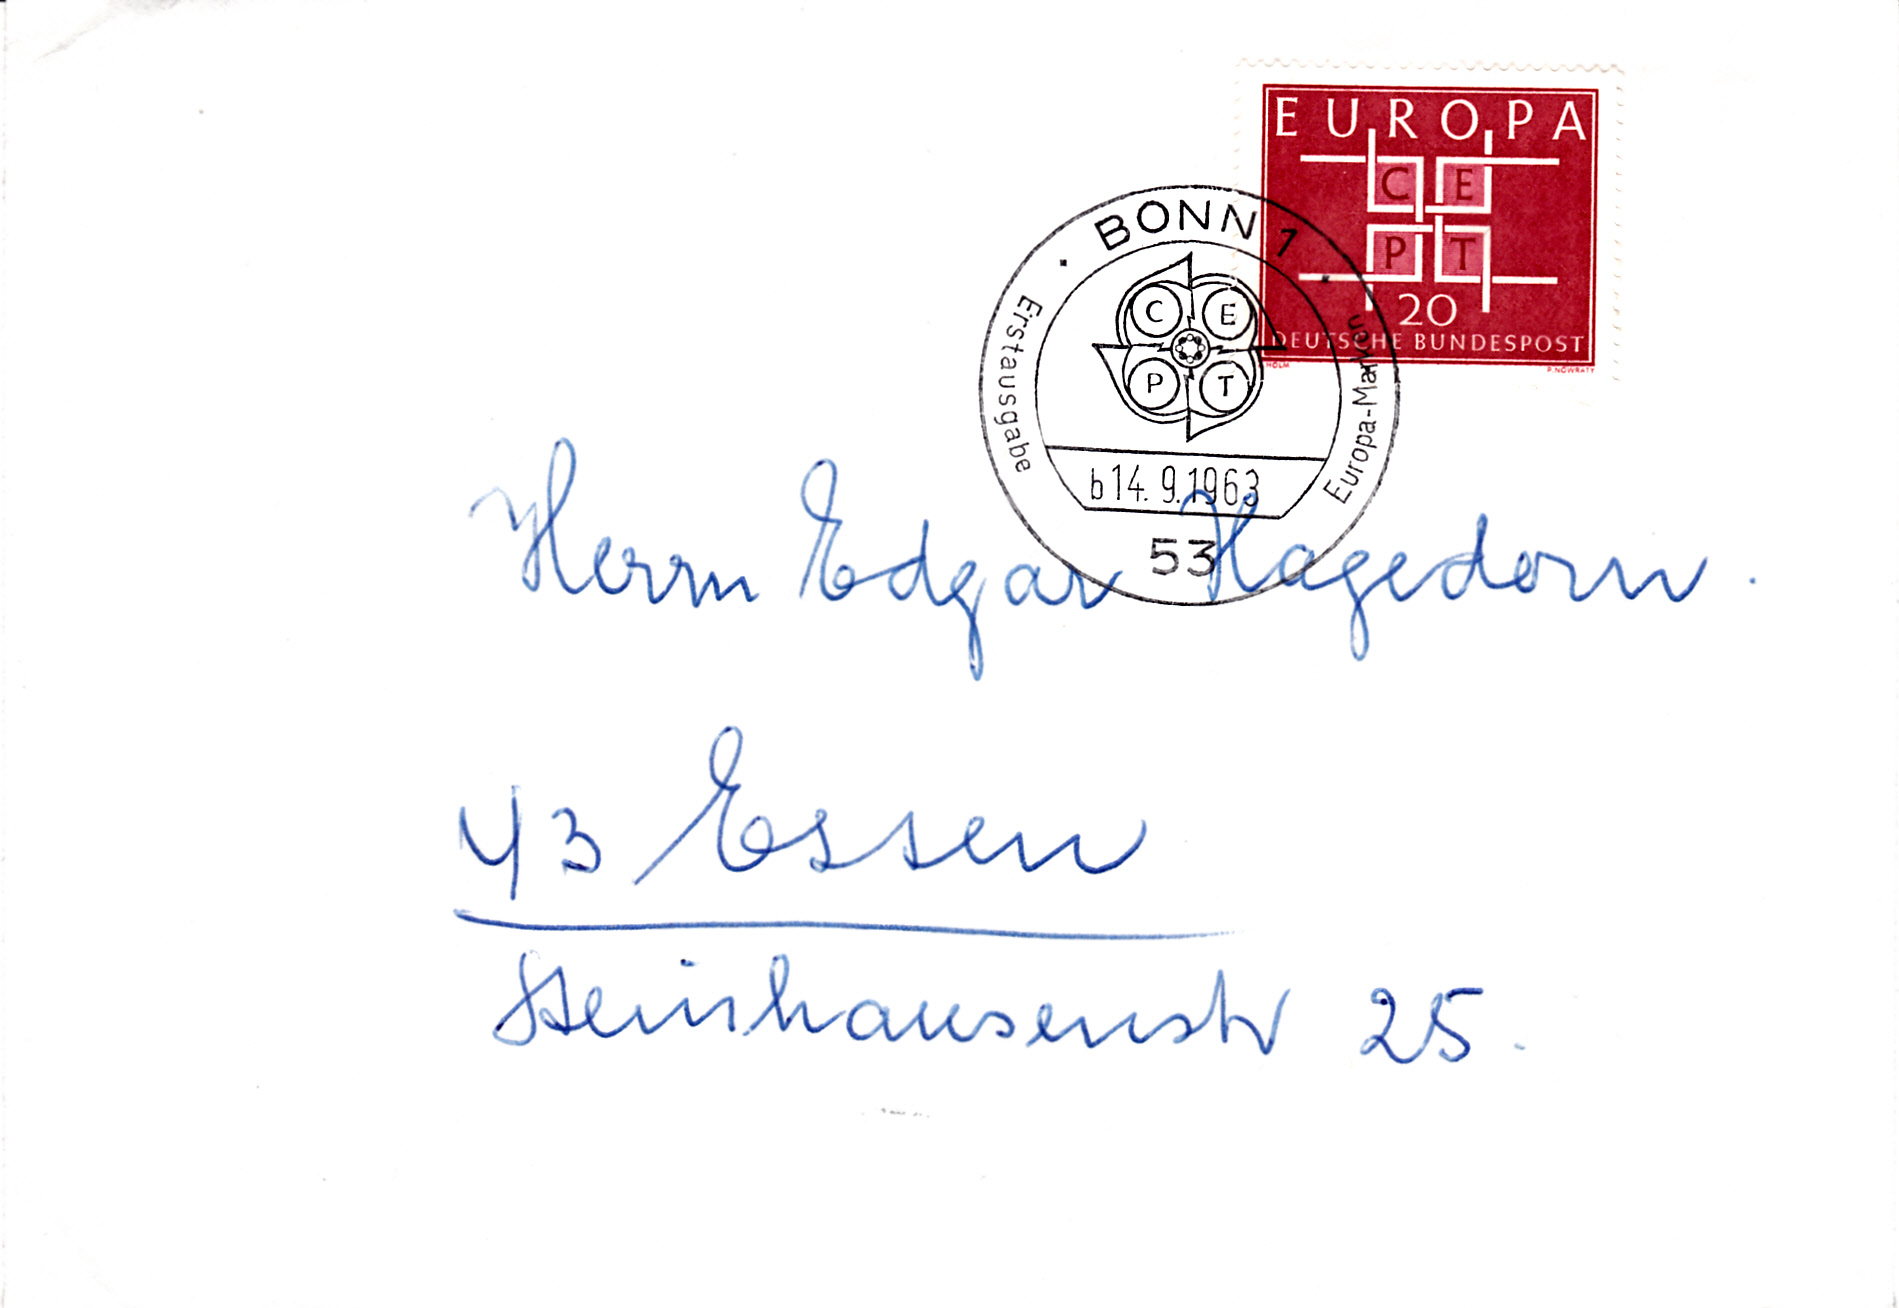 EUROPA
C E
P T
20
DEUTSCHE BUNDESPOST
HOLM
P. NOWRATY
BONN 1
Erstausgabe
Europa-Marken
C E
P T
b14. 9.1963
53
Herrn Edgar Hagedorn.
43 Essen
Steinshausenstr 25.